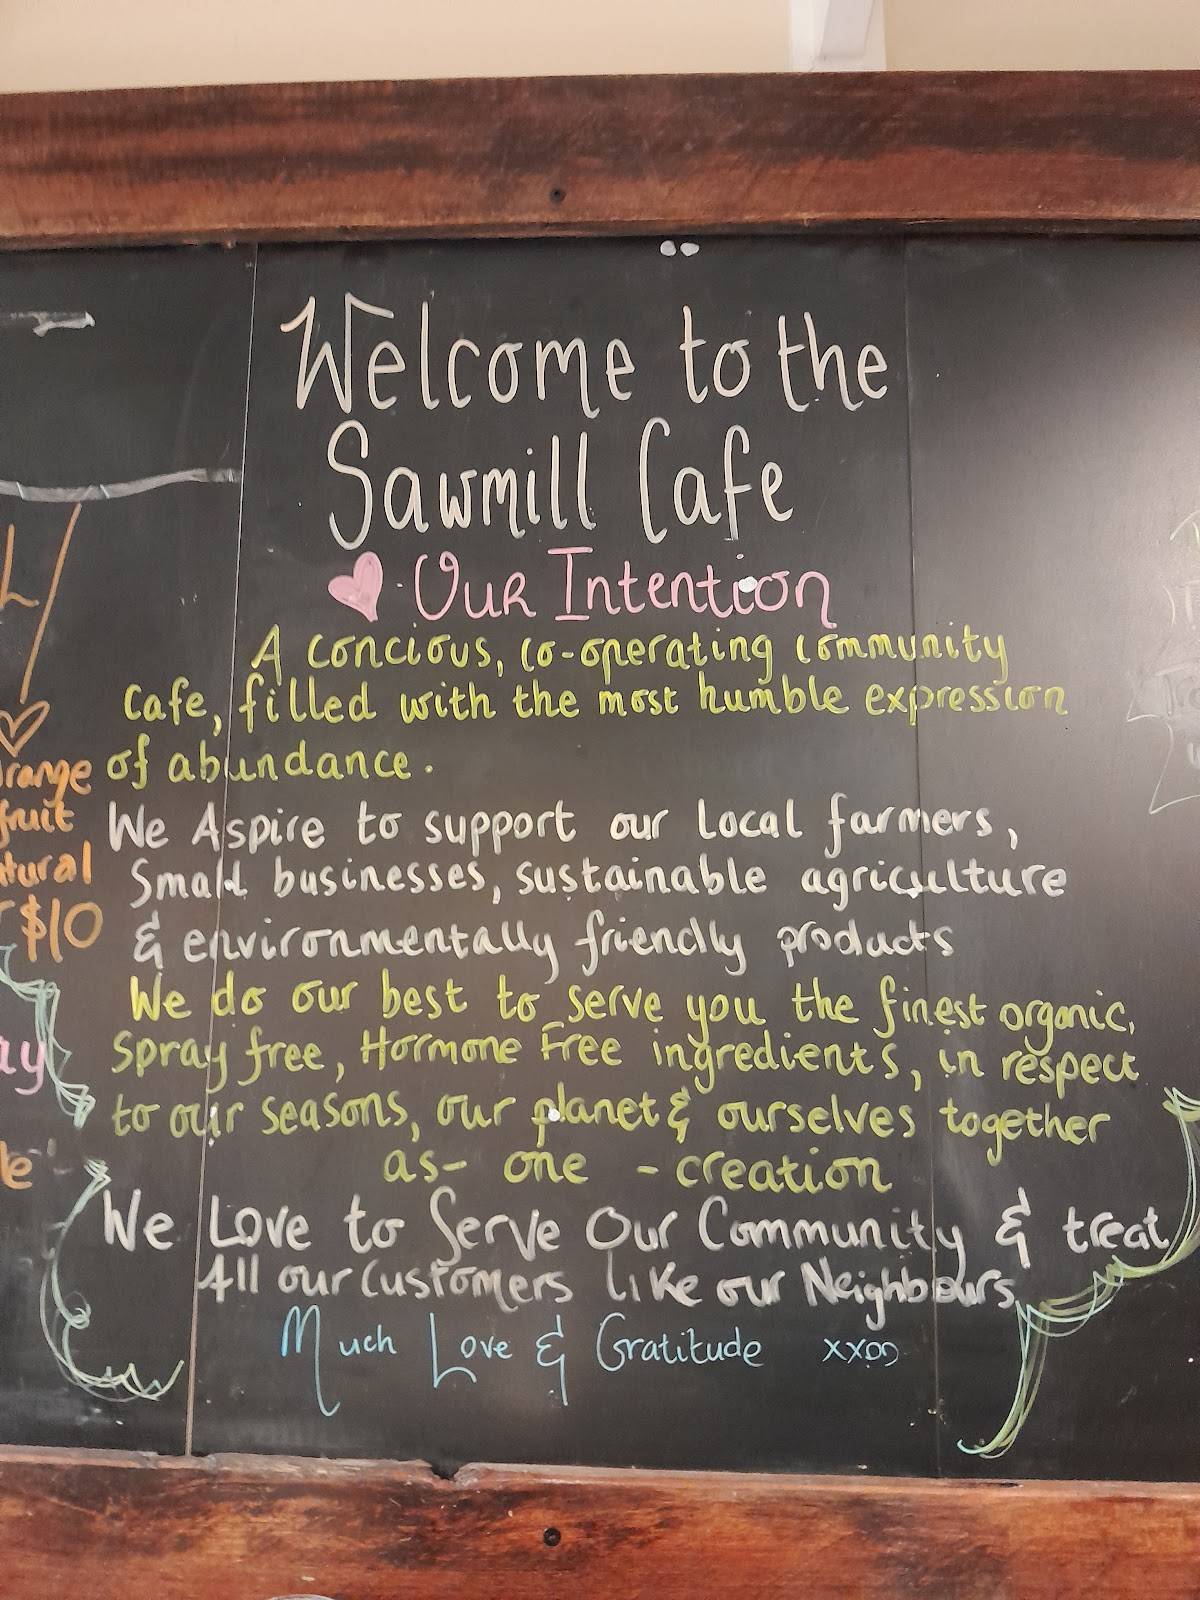 Welcome to the
Sawmill Cafe
Our Intention
A concious, co-operating community
Cafe, filled with the most humble expression
of abundance.
We Aspire to support our local farmers,
Small businesses, sustainable agriculture
& environmentally friendly products
We do our best to serve you the finest organic,
Spray free, Hormone Free ingredients, in respect
to our seasons, our planet & ourselves together
as- one - creation
We Love to Serve Our Community & treat
All our Customers like our Neighbours
Much Love & Gratitude xxoo
fruit
$10